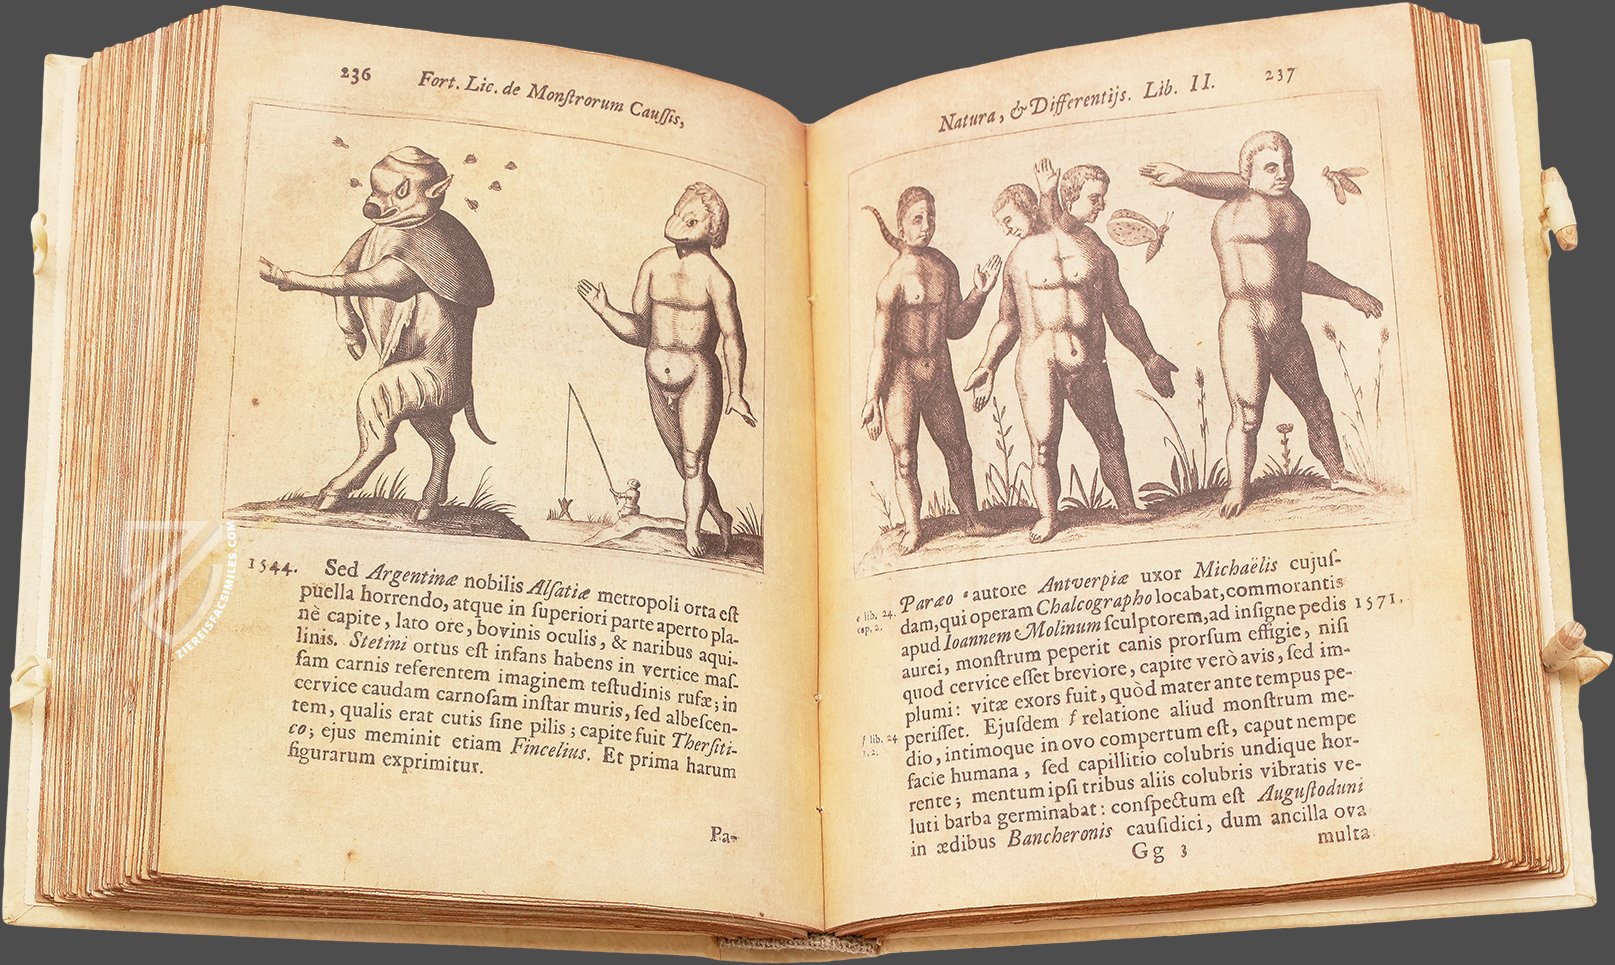 236
Fort. Lic. de Monſtrorum Cauſſis,
1544. Sed Argentinæ nobilis Alſatiæ metropoli orta eſt
puella horrendo, atque in ſuperiori parte aperto pla-
nè capite, lato ore, bovinis oculis, & naribus aqui-
linis. Stetini ortus eſt infans habens in vertice maſ-
ſam carnis referentem imaginem teſtudinis rufæ; in
cervice caudam carnoſam inſtar muris, ſed albeſcen-
tem, qualis erat cutis ſine pilis; capite fuit Therſiti-
co; ejus meminit etiam Fincelius. Et prima harum
figurarum exprimitur.
Pa-
Natura, & Differentijs. Lib. II.
237
Paræo e autore Antverpiæ uxor Michaëlis cujuſ-
e lib. 24.
cap. 2.
dam, qui operam Chalcographo locabat, commorantis
apud Ioannem Molinum ſculptorem, ad inſigne pedis 1571.
aurei, monſtrum peperit canis prorſum effigie, niſi
quod cervice eſſet breviore, capite verò avis, ſed im-
plumi: vitæ exors fuit, quòd mater ante tempus pe-
periſſet. Ejuſdem f relatione aliud monſtrum me-
f lib. 24.
dio, intimoque in ovo compertum eſt, caput nempe
facie humana, ſed capillitio colubris undique hor-
rente; mentum ipſi tribus aliis colubris vibratis ve-
luti barba germinabat: conſpectum eſt Auguſtoduni
in ædibus Bancheronis cauſidici, dum ancilla ova
Gg 3
multa
ZIEREISFACSIMILES.COM